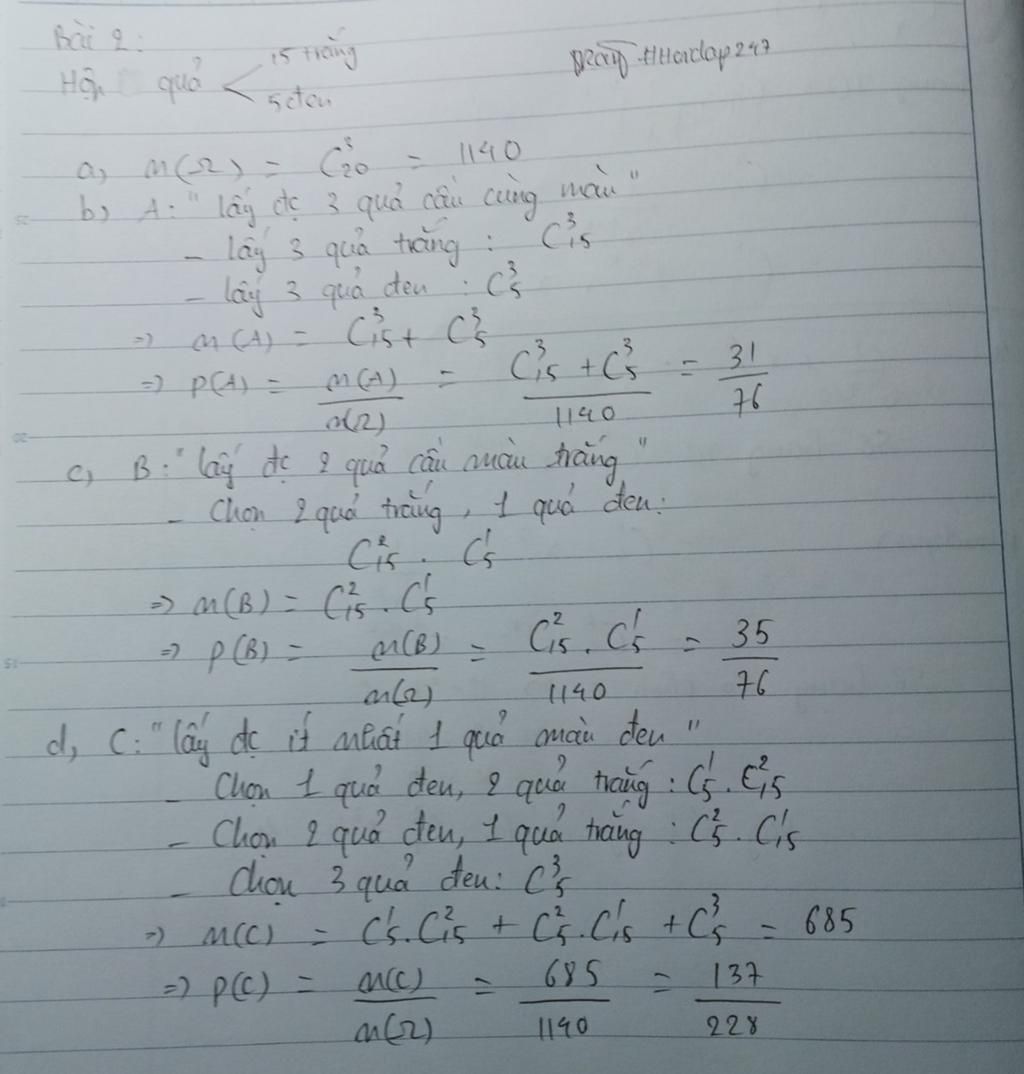 Bài 2:
Hộp quả < 15 trắng
5 đen
a, n(Ω) = C³₂₀ = 1140
b, A: "lấy đc 3 quả cầu cùng màu"
- lấy 3 quả trắng : C³₁₅
- lấy 3 quả đen : C³₅
=> n(A) = C³₁₅ + C³₅
=> P(A) = n(A)/n(Ω) = (C³₁₅ + C³₅)/1140 = 31/76
c, B: "lấy đc 2 quả cầu màu trắng"
- Chọn 2 quả trắng, 1 quả đen:
C²₁₅ . C¹₅
=> n(B) = C²₁₅ . C¹₅
=> P(B) = n(B)/n(Ω) = (C²₁₅ . C¹₅)/1140 = 35/76
d, C: "lấy đc ít nhất 1 quả màu đen"
- Chọn 1 quả đen, 2 quả trắng : C¹₅ . C²₁₅
- Chọn 2 quả đen, 1 quả trắng : C²₅ . C¹₁₅
- Chọn 3 quả đen: C³₅
=> n(C) = C¹₅ . C²₁₅ + C²₅ . C¹₁₅ + C³₅ = 685
=> P(C) = n(C)/n(Ω) = 685/1140 = 137/228